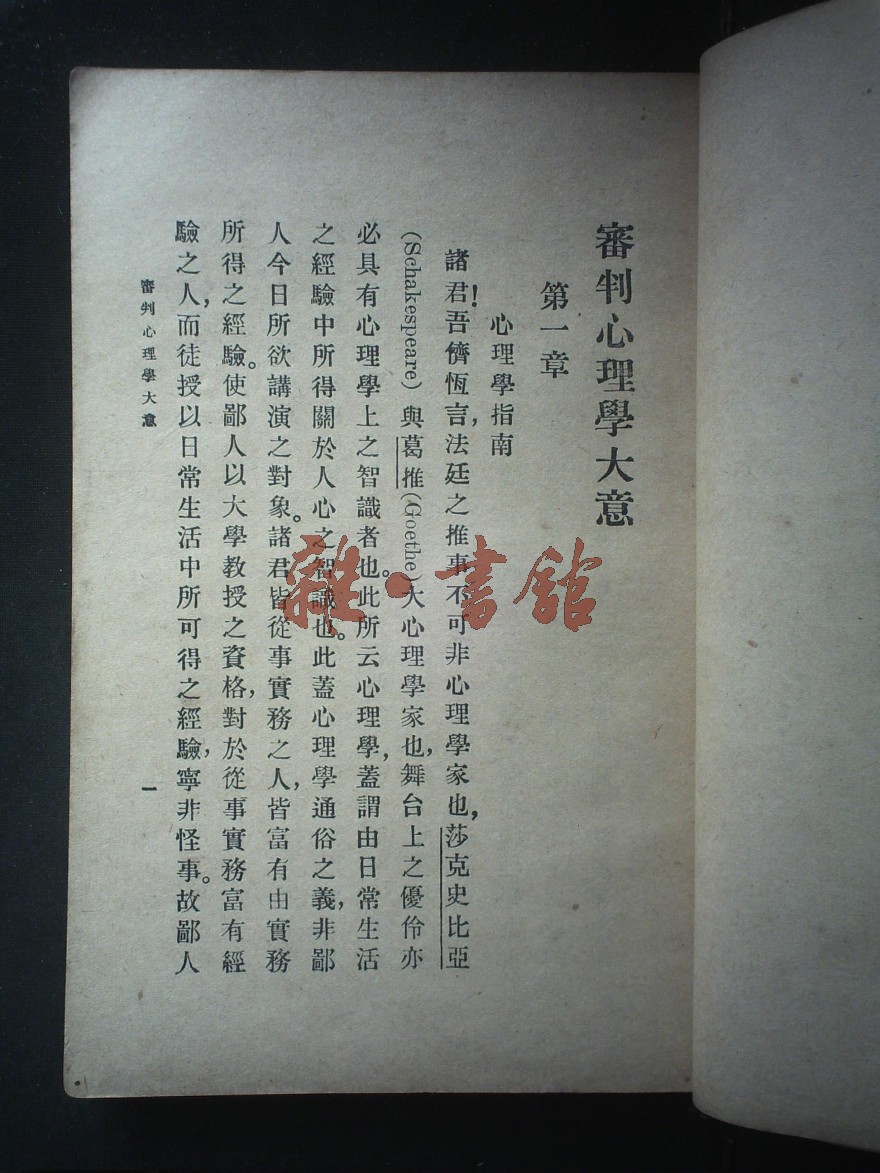 審判心理學大意
第一章
心理學指南
諸君!吾儕恆言,法廷之推事不可非心理學家也,莎克史比亞
(Schakespeare)與葛推(Goethe)大心理學家也,舞台上之優伶亦
必具有心理學上之智識者也。此所云心理學,蓋謂由日常生活
之經驗中所得關於人心之智識也。此蓋心理學通俗之義,非鄙
人今日所欲講演之對象。諸君皆從事實務之人,皆富有由實務
所得之經驗。使鄙人以大學教授之資格,對於從事實務富有經
驗之人,而徒授以日常生活中所可得之經驗,寧非怪事。故鄙人
審判心理學大意
一
雜·書館